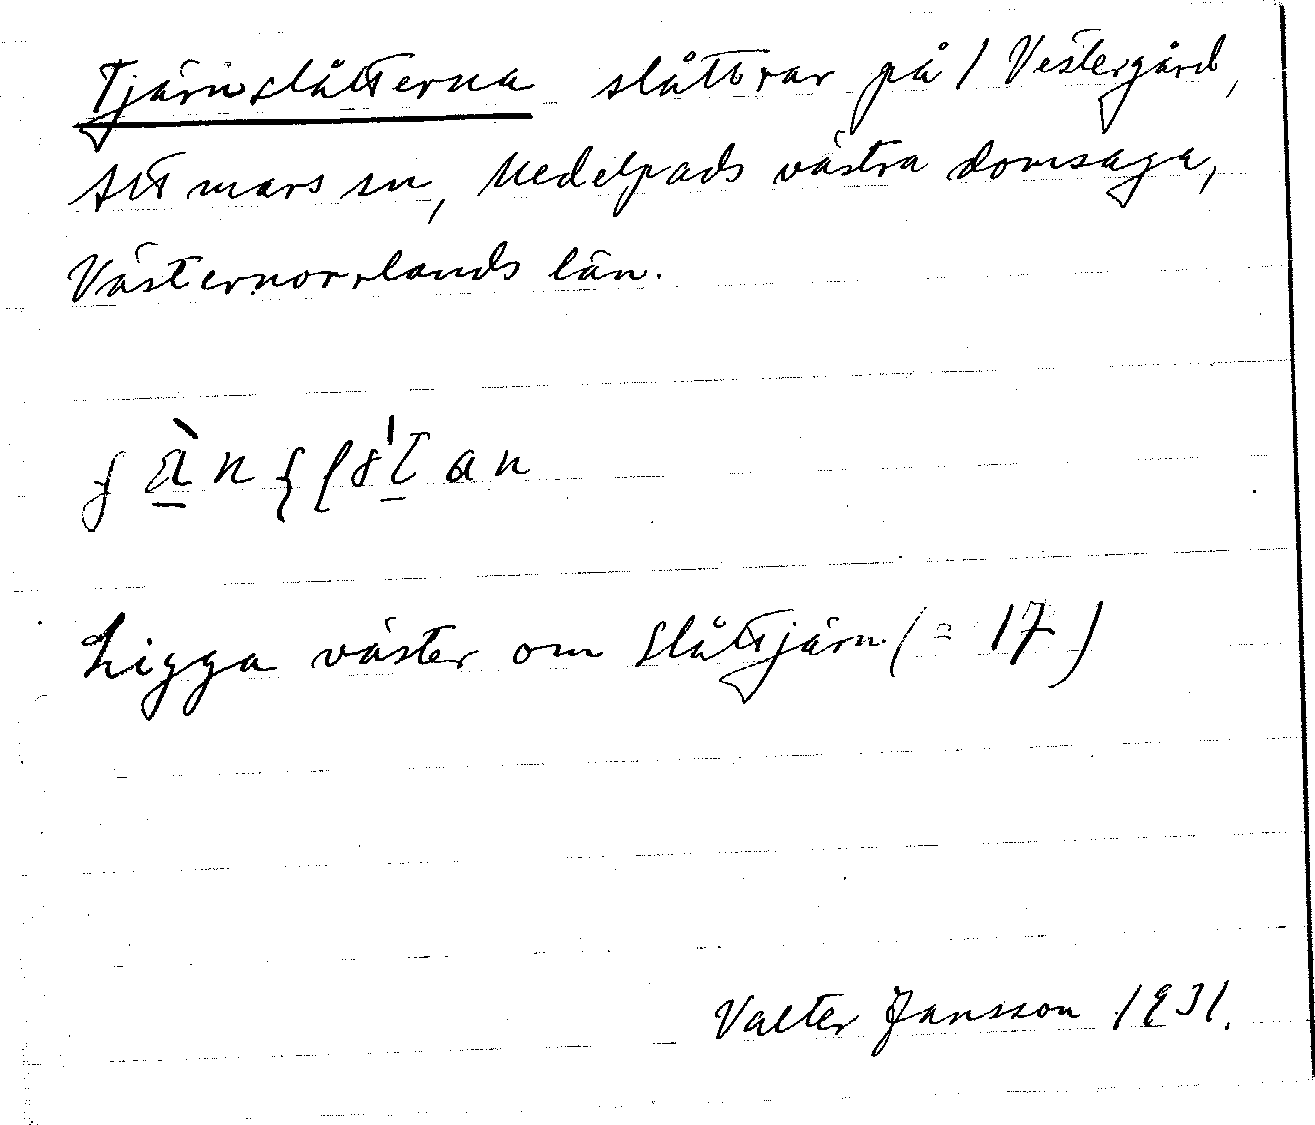 Tjärnslåtterna slåttrar på 1 Vestergård,
Attmars sn, Medelpads västra domsaga,
Västernorrlands län.
Ligga väster om Slåttjärn (= 17)
Valter Jansson 1931.